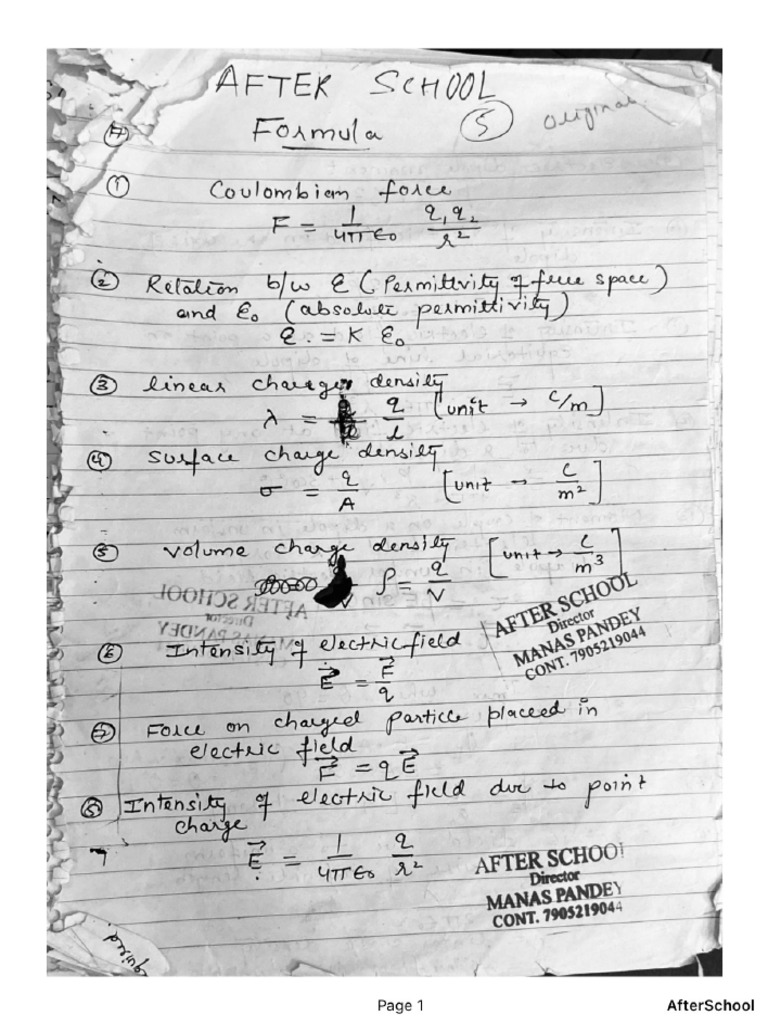 AFTER SCHOOL
Formula
5
original
① Coulombian force
F = 1/4πε₀ q₁q₂/r²
② Relation b/w ε (Permittvity of free space)
and ε₀ (absolute permittivity)
ε = K ε₀
③ linear charge density
λ = q/l [unit → C/m]
④ surface charge density
σ = q/A [unit → C/m²]
⑤ volume charge density [unit → C/m³]
ρ = q/V
AFTER SCHOOL
Director
MANAS PANDEY
CONT. 7905219044
⑥ Intensity of electric field
E⃗ = F⃗/q
⑦ Force on charged particle placeed in
electric field
F⃗ = qE⃗
⑧ Intensity of electric field due to point
charge
E⃗ = 1/4πε₀ q/r²
AFTER SCHOOL
Director
MANAS PANDEY
CONT. 7905219044
Page 1
AfterSchool